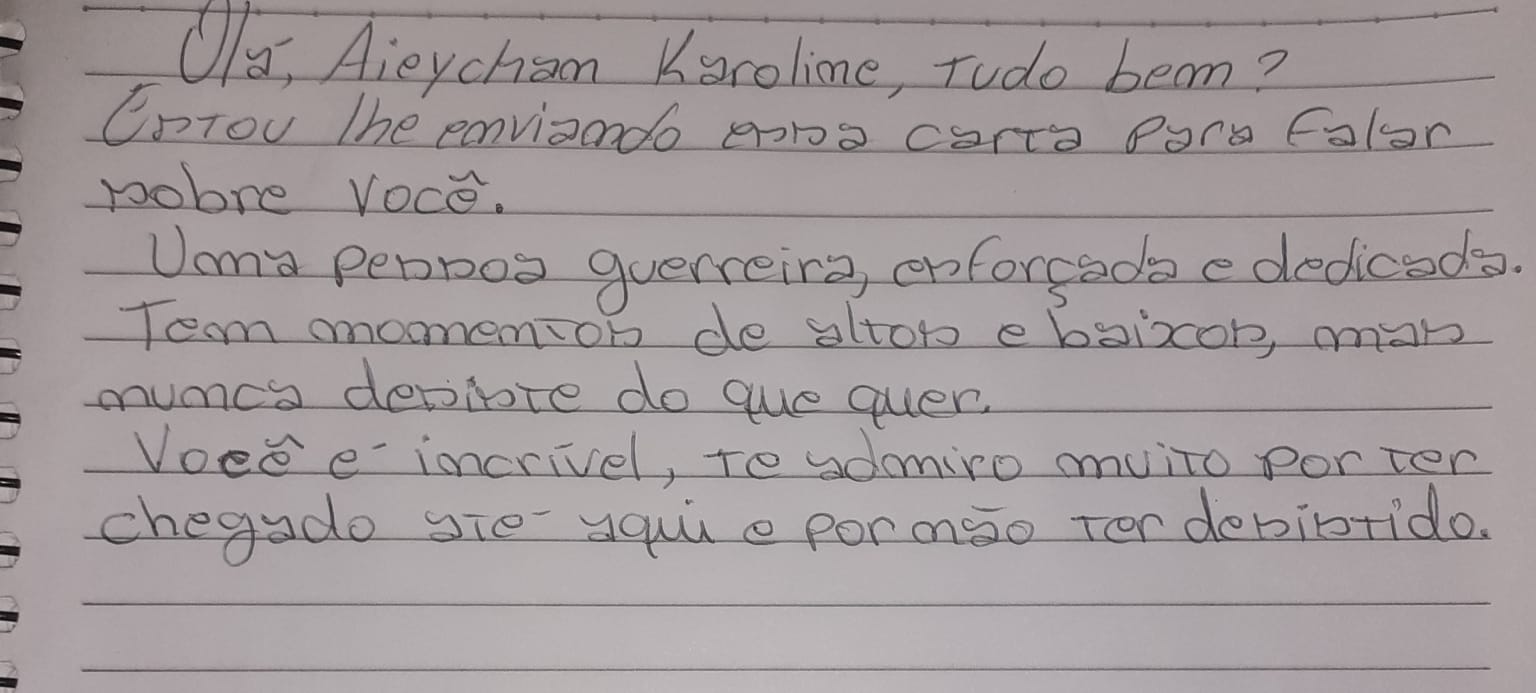 Olá, Aieychan Karoline, tudo bem?
Estou lhe enviando essa carta para falar
sobre você.
Uma pessoa guerreira, esforçada e dedicada.
Tem momentos de altos e baixos, mas
nunca desiste do que quer.
Você é incrível, te admiro muito por ter
chegado até aqui e por não ter desistido.